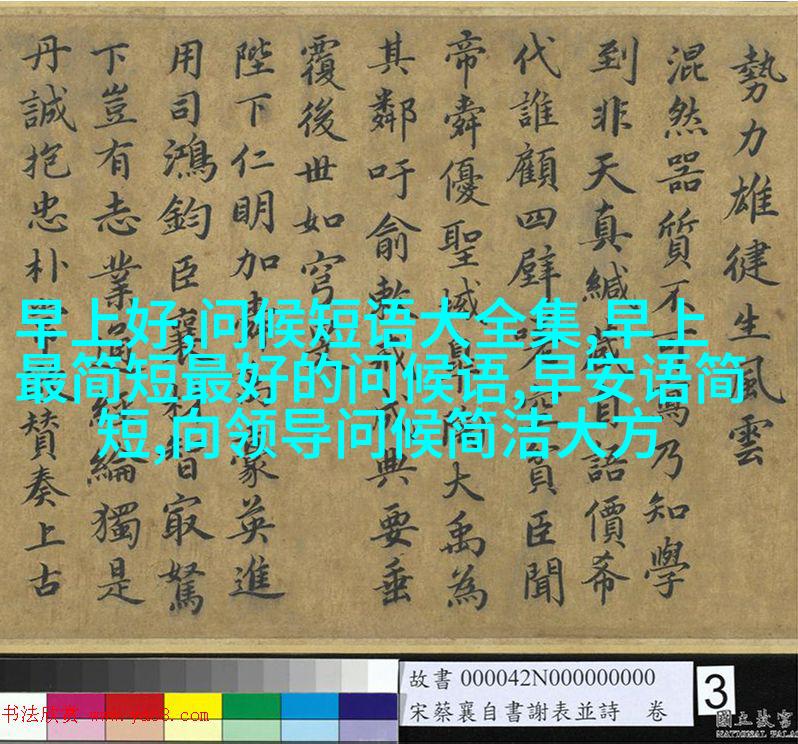 早上好,问候短语大全集,早上
最简短最好的问候语,早安语简
短,向领导问候简洁大方
勢力雄徤生風雲
混然器質不焉乃知學
到非天真緘藏自語價希
代誰顧四壁臣聞
帝舜優聖域大禹為
其鄰吁俞成典要垂
覆後世如穹
陛下仁明加豪英進
用司鴻鈞臣襄㝡駑
下豈有志業綸獨是
丹誠抱忠朴贊奏上古
故書 000042N000000000
宋蔡襄自書謝表並詩 卷
3
書法欣赏 www.yac8.com
國立故宮
NATIONAL PALAC